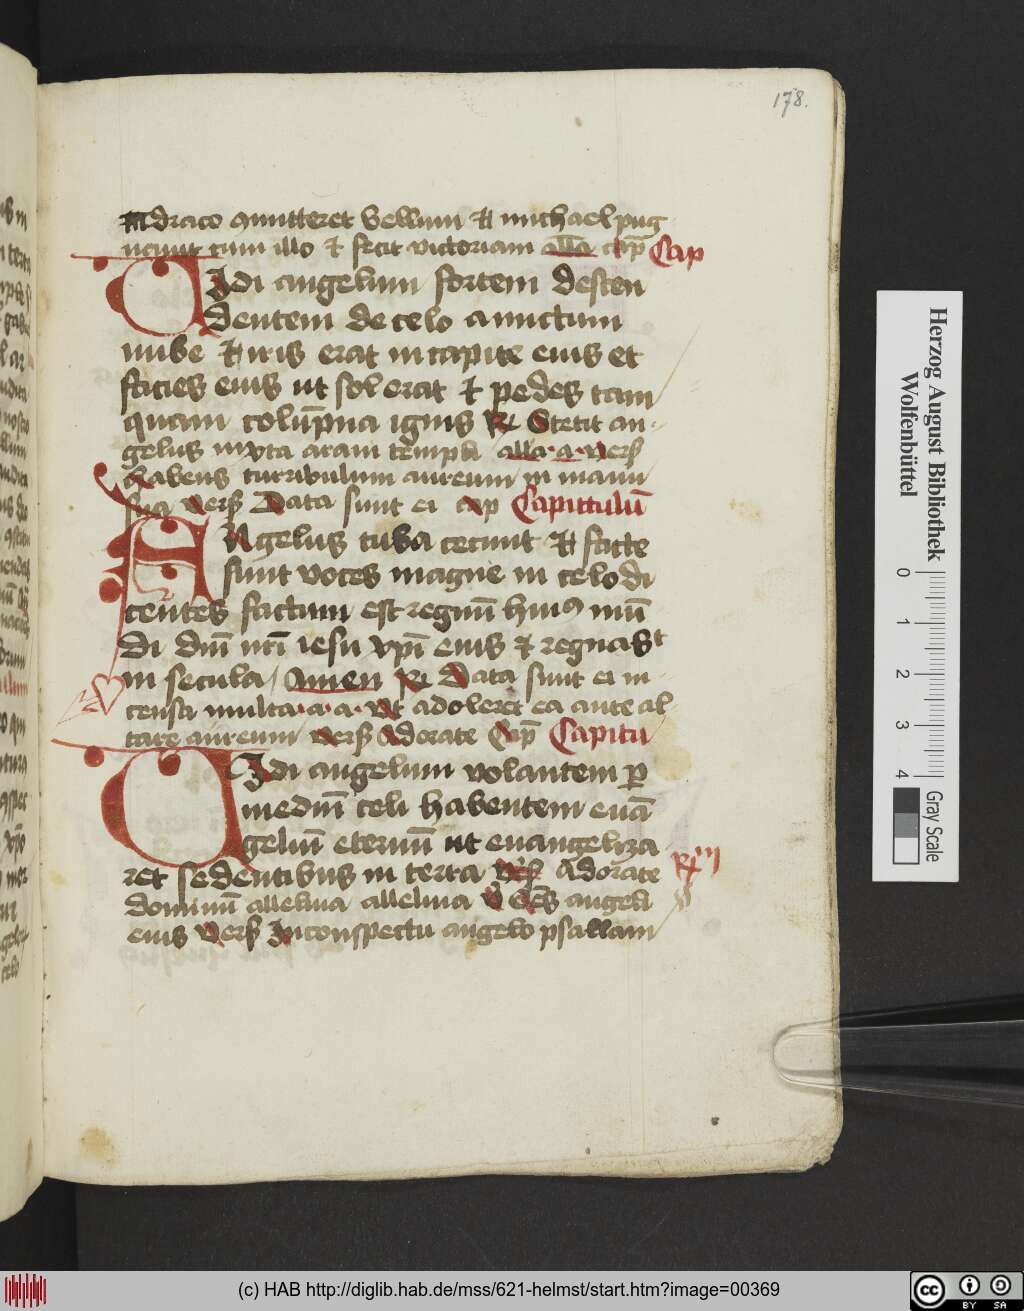 178.
draco committeret bellum & michael pug
neuut cum illo & fecit victoriam alla cap Cap
Vidi angelum fortem descen
dentem de celo amictum
nube & iris erat in capite eius et
facies eius ut sol erat & pedes tam
quam colūpna ignis R Stetit an-
gelus iuxta aram templi alla·a· vers
habens turribulum aureum in manu
sua vers Data sunt ei cap Capittulū
Angelus tuba cecinit & facte
sunt voces magne in celo di
centes factum est regnū huiꝰ mū
di dnī nri iesu xpi eius & regnabᵗ
in secula Amen R Data sunt ei in-
censa multa·a·a· ut adoleret ea ante al-
tare aureum vers Adorate Cap Capitu
Vidi angelum volantem p
mediū celi habentem euā
geliū eternū ut euangeliza
ret sedentibus in terra vers Adorate
dominū alleluia alleluia angeli
eius vers In conspectu angelo psallam
Herzog August Bibliothek
Wolfenbüttel
0 1 2 3 4 Gray Scale
(c) HAB http://diglib.hab.de/mss/621-helmst/start.htm?image=00369
cc BY SA